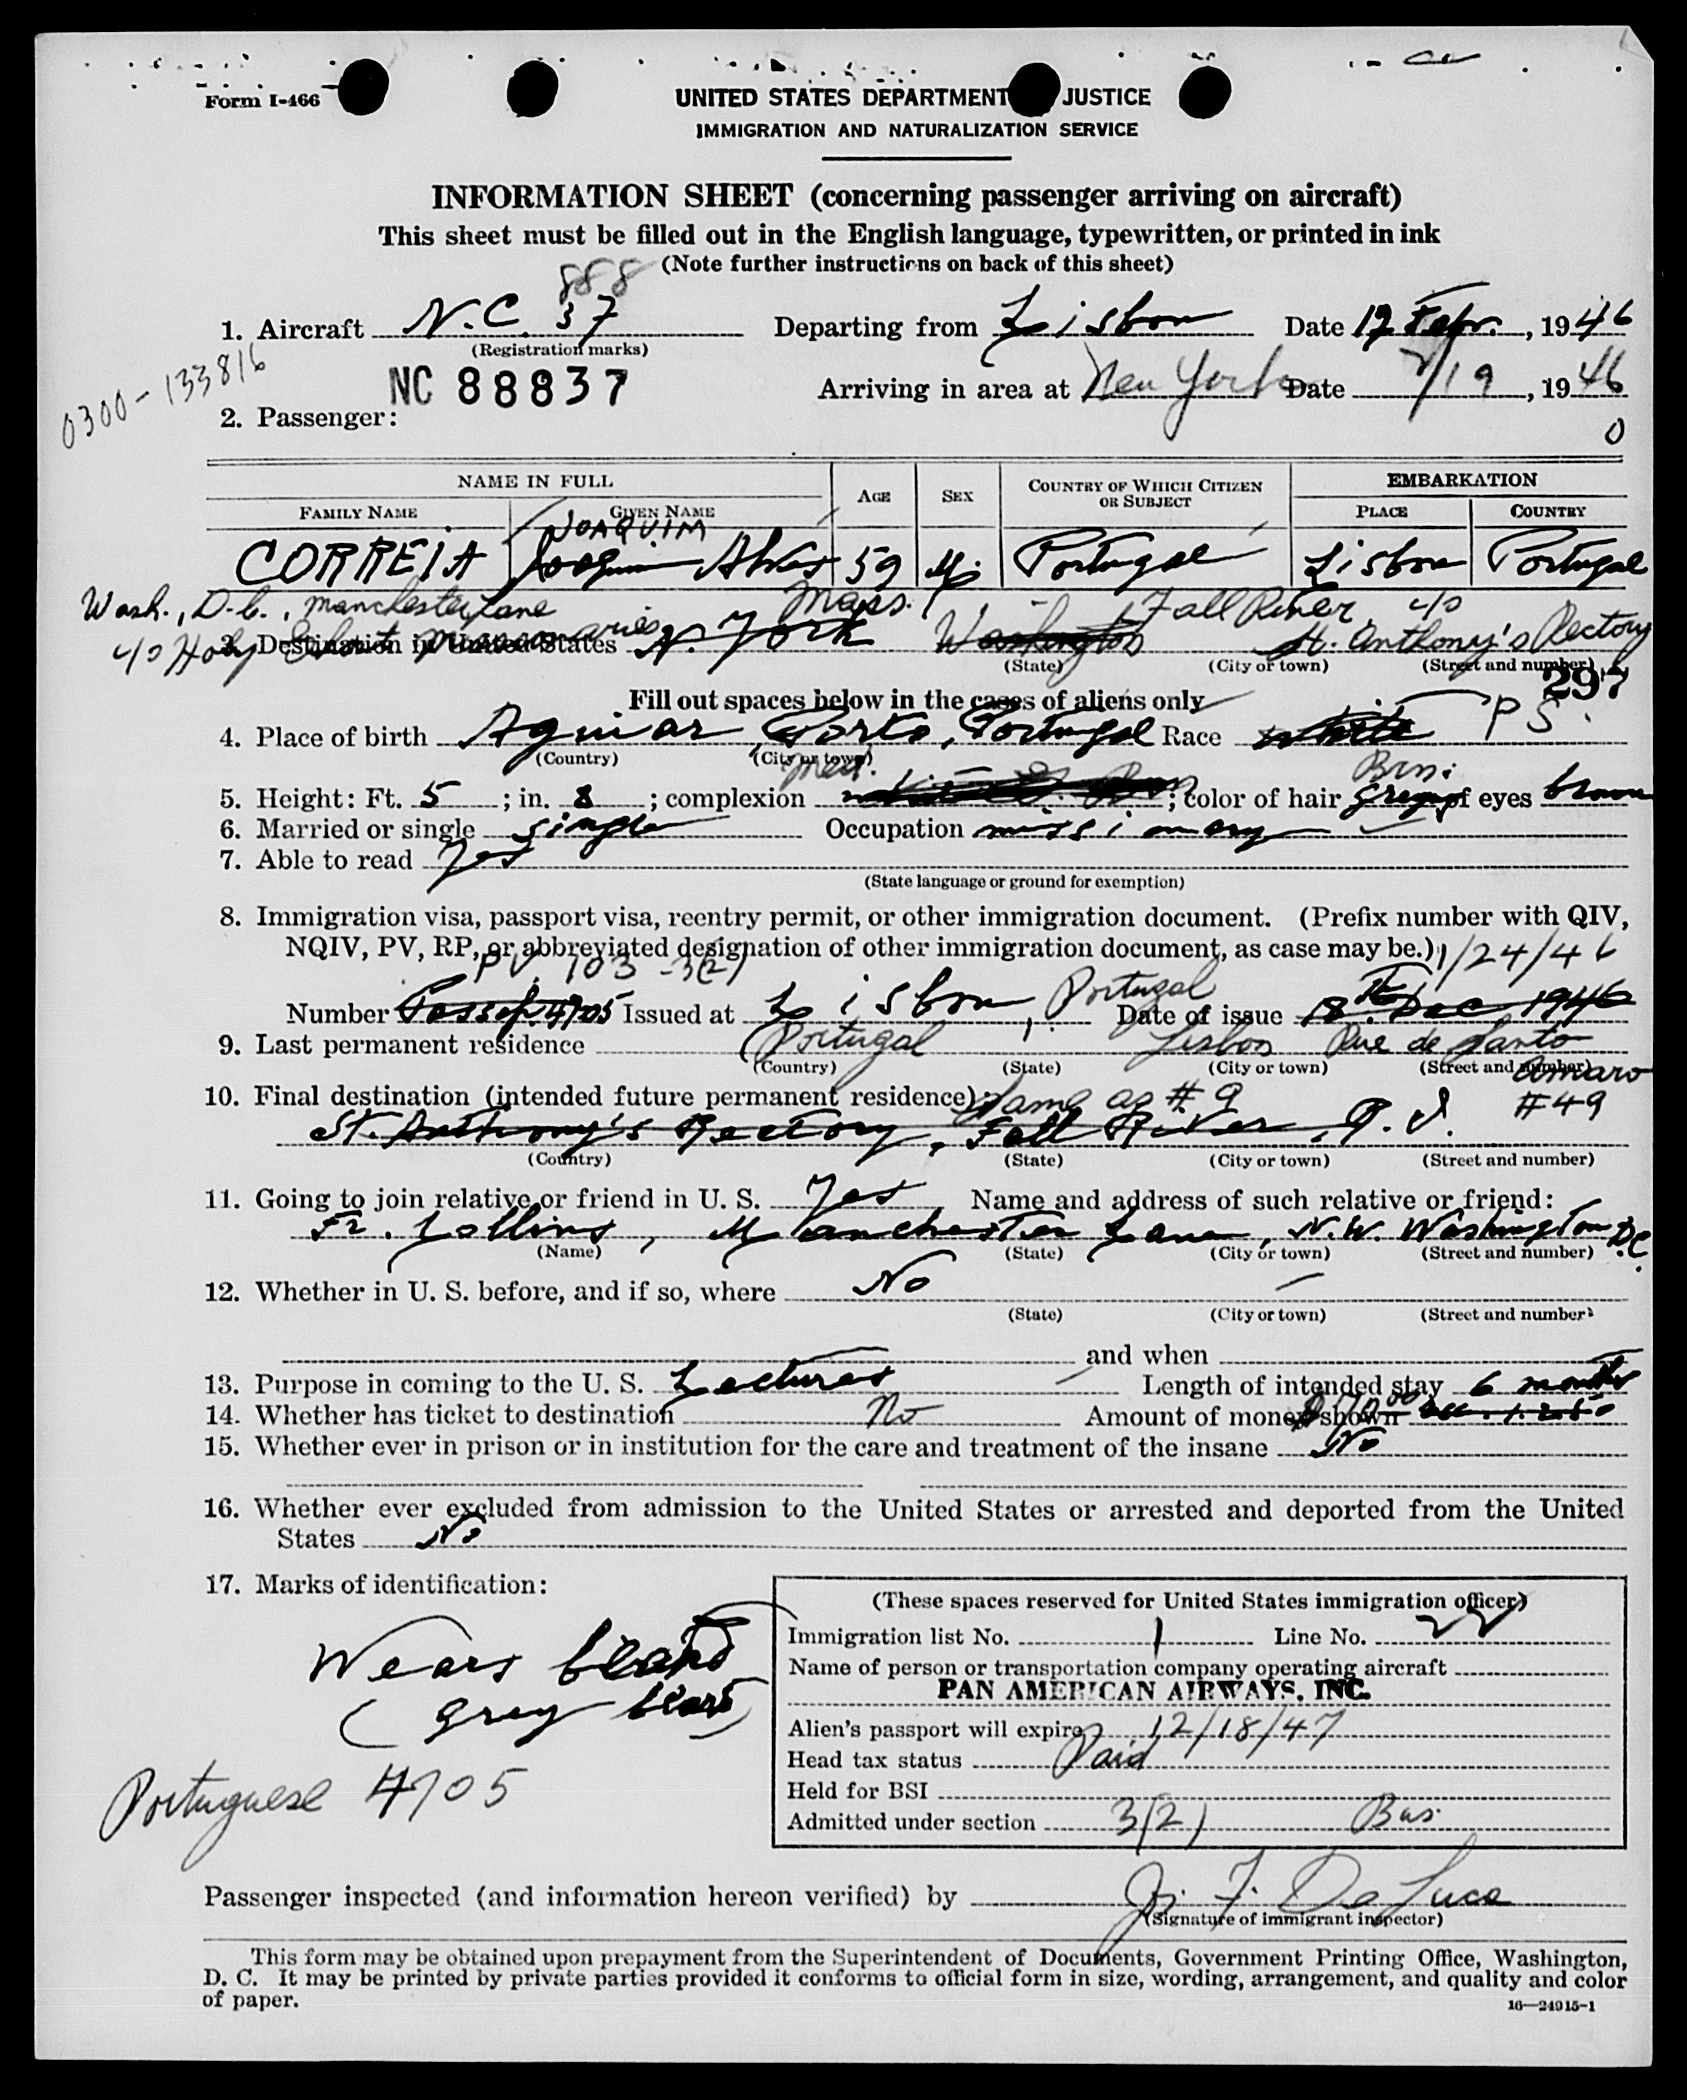 Form I-466
UNITED STATES DEPARTMENT JUSTICE
IMMIGRATION AND NATURALIZATION SERVICE
INFORMATION SHEET (concerning passenger arriving on aircraft)
This sheet must be filled out in the English language, typewritten, or printed in ink
(Note further instructions on back of this sheet)
888
1. Aircraft N.C. 37 Departing from Lisbon Date 19 Febr., 1946
(Registration marks)
0300-133816
NC 88837 Arriving in area at New York Date 2/19, 1946
2. Passenger:
0
NAME IN FULL AGE SEX COUNTRY OF WHICH CITIZEN OR SUBJECT EMBARKATION
FAMILY NAME GIVEN NAME PLACE COUNTRY
JOAQUIM
CORREIA Joaquim Alves 59 M. Portugal Lisbon Portugal
Wash., D.C., Manchester Lane Mass. Fall River, c/o
c/o Holy Ghost Missionaries
3. Destination in United States N. York Washington St. Anthony's Rectory
(State) (City or town) (Street and number)
297
Fill out spaces below in the cases of aliens only
4. Place of birth Aguiar, Porto, Portugal Race white PS.
(Country) (City or town)
Med. Brn.
5. Height: Ft. 5; in. 8; complexion ; color of hair grey of eyes brown
6. Married or single single Occupation missionary
7. Able to read Yes
(State language or ground for exemption)
8. Immigration visa, passport visa, reentry permit, or other immigration document. (Prefix number with QIV,
NQIV, PV, RP, or abbreviated designation of other immigration document, as case may be.) 1/24/46
PV. 103-3(2)
Number Passp. 4705 Issued at Lisbon, Portugal Date of issue 18 Dec 1946
9. Last permanent residence Portugal Lisbon Rue de Santo
(Country) (State) (City or town) (Street and number)
Amaro
10. Final destination (intended future permanent residence): Same as # 9 #49
St. Anthony's Rectory, Fall River, R. I.
(Country) (State) (City or town) (Street and number)
11. Going to join relative or friend in U. S. Yes Name and address of such relative or friend:
Fr. Collins, Manchester Lane, N.W. Washington D.C.
(Name) (State) (City or town) (Street and number)
12. Whether in U. S. before, and if so, where No
(State) (City or town) (Street and number)
and when
13. Purpose in coming to the U. S. Lectures Length of intended stay 6 months
14. Whether has ticket to destination No Amount of money shown
15. Whether ever in prison or in institution for the care and treatment of the insane No
16. Whether ever excluded from admission to the United States or arrested and deported from the United
States No
17. Marks of identification:
Wears beard
(grey beard)
Portuguese 4705
(These spaces reserved for United States immigration officer)
Immigration list No. 1 Line No. 22
Name of person or transportation company operating aircraft
PAN AMERICAN AIRWAYS, INC.
Alien's passport will expire 12/18/47
Head tax status Paid
Held for BSI
Admitted under section 3(2) Bus.
Passenger inspected (and information hereon verified) by J. F. De Luca
(Signature of immigrant inspector)
This form may be obtained upon prepayment from the Superintendent of Documents, Government Printing Office, Washington,
D. C. It may be printed by private parties provided it conforms to official form in size, wording, arrangement, and quality and color
of paper.
16—24915-1